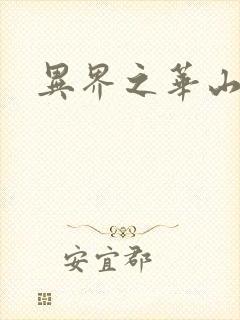 異界之華山
安宜郡